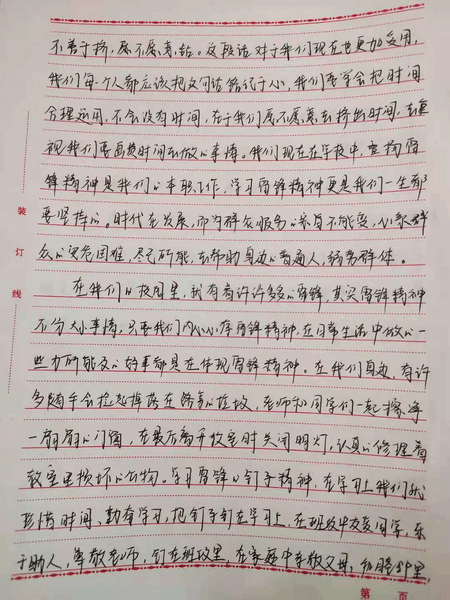 不善于挤,愿不愿意钻。这段话对于我们现在也更加受用,
我们每个人都应该把这句话铭记于心,我们要学会把时间
合理运用,不会没有时间,在于我们愿不愿意去挤出时间,去重
视我们要画费时间去做的事情。我们现在在学校中,宣扬雷
锋精神是我们的本职工作,学习雷锋精神更是我们一生都
要坚持的。时代在发展,而为群众服务的宗旨不能变,心系群
众的安危困难,尽己所能,去帮助身边的普通人,弱势群体。
在我们的校园里,就有着许许多多的雷锋,其实雷锋精神
不分大小事情,只要我们内心心存雷锋精神,在日常生活中做的一
些力所能及的好事都是在体现雷锋精神。在我们身边,有许
多随手会捡起掉落在路旁的垃圾,老师和同学们一起擦净
一扇扇的门窗,在最后离开教室时关闭明灯,认真的修理着
教室里损坏的公物。学习雷锋的钉子精神,在学习上我们就
珍惜时间、勤奋学习,把钉子钉在学习上,在班级中友爱同学,乐
于助人,尊敬老师,钉在班级里,在家庭中孝敬父母,和睦邻里,
装
订
线
第 页